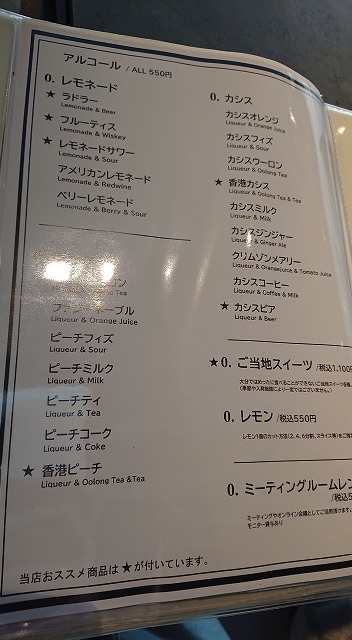 アルコール / ALL 550円
0. レモネード
★ ラドラー
Lemonade & Beer
★ フルーティス
Lemonade & Wiskey
★ レモネードサワー
Lemonade & Sour
アメリカンレモネード
Lemonade & Redwine
ベリーレモネード
Lemonade & Berry & Sour
ロン
Tea
ファジーネーブル
Liqueur & Orange Juice
ピーチフィズ
Liqueur & Sour
ピーチミルク
Liqueur & Milk
ピーチティ
Liqueur & Tea
ピーチコーク
Liqueur & Coke
★ 香港ピーチ
Liqueur & Oolong Tea &Tea
0. カシス
カシスオレンジ
Liqueur & Orange Juice
カシスフィズ
Liqueur & Sour
カシスウーロン
Liqueur & Oolong Tea
★ 香港カシス
Liqueur & Oolong Tea & Tea
カシスミルク
Liqueur & Milk
カシスジンジャー
Liqueur & Ginger Ale
クリムゾンメアリー
Liqueur & Orangejuice & Tomato Juice
カシスコーヒー
Liqueur & Coffee & Milk
★ カシスビア
Liqueur & Beer
★0. ご当地スイーツ /税込1,100円
大分ではめったに食べることができないご当地スイーツ
0. レモン /税込550円
レモン1個のカット方法(2,4,6分割、スライス等)をご
0. ミーティングルームレン
/税込5
ミーティングやオンライン会議としてご活用頂けます。
モニター貸与あり
当店おススメ商品は★が付いています。